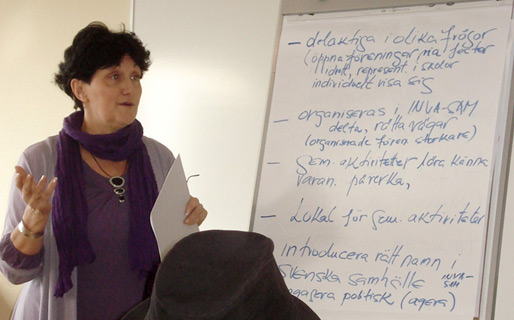 - delaktiga i olika frågor
(öppna föreningar via fester
idrott, represent. i skolor
individuellt visa sig
- organiseras i INVA-SAM
delta, rätta vägar
(organiserade fören. starkare)
- Gem. aktiviteter lära känna
varan. påverka,
- Lokal för gem. aktiviteter
introducera rätt namn i
svenska samhälle INVA-SAM
engagera politisk (agera)